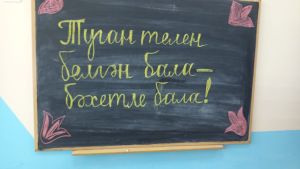 Туган телен
белгән бала–
бәхетле бала!